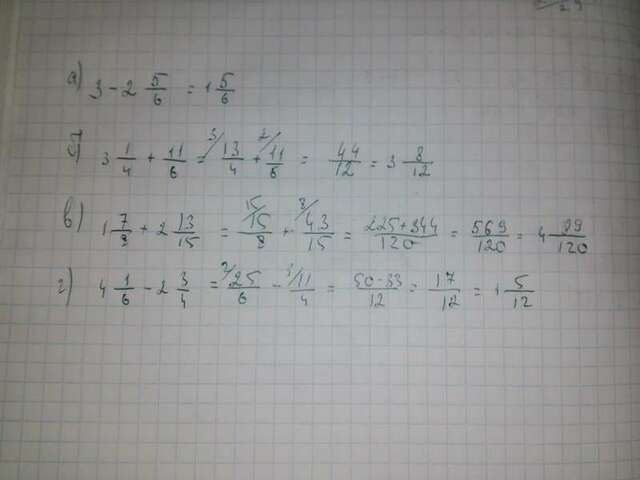 а) 3 - 2 5/6 = 1 5/6
б) 3 1/4 + 11/6 = 3/ 13/4 + 2/ 11/6 = 44/12 = 3 8/12
в) 1 7/8 + 2 13/15 = 15/ 15/8 + 8/ 43/15 = 225+344/120 = 569/120 = 4 89/120
г) 4 1/6 - 2 3/4 = 2/ 25/6 - 3/ 11/4 = 50-33/12 = 17/12 = 1 5/12